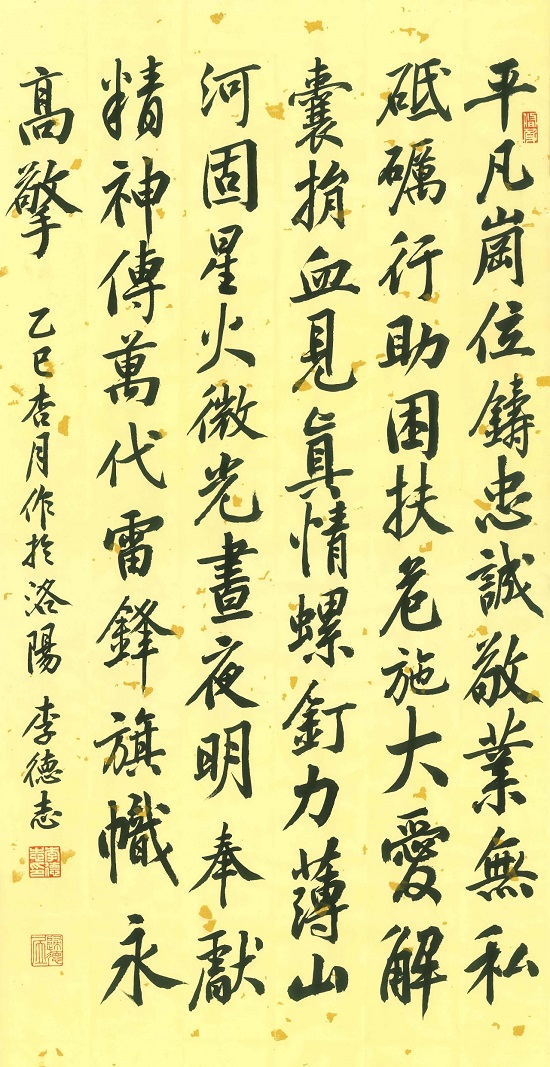 平凡崗位鑄忠誠敬業無私
砥礪行助困扶危施大愛解
囊捐血見真情螺釘力薄山
河固星火微光晝夜明奉獻
精神傳萬代雷鋒旗幟永
高擎
乙巳杏月作於洛陽 李德志